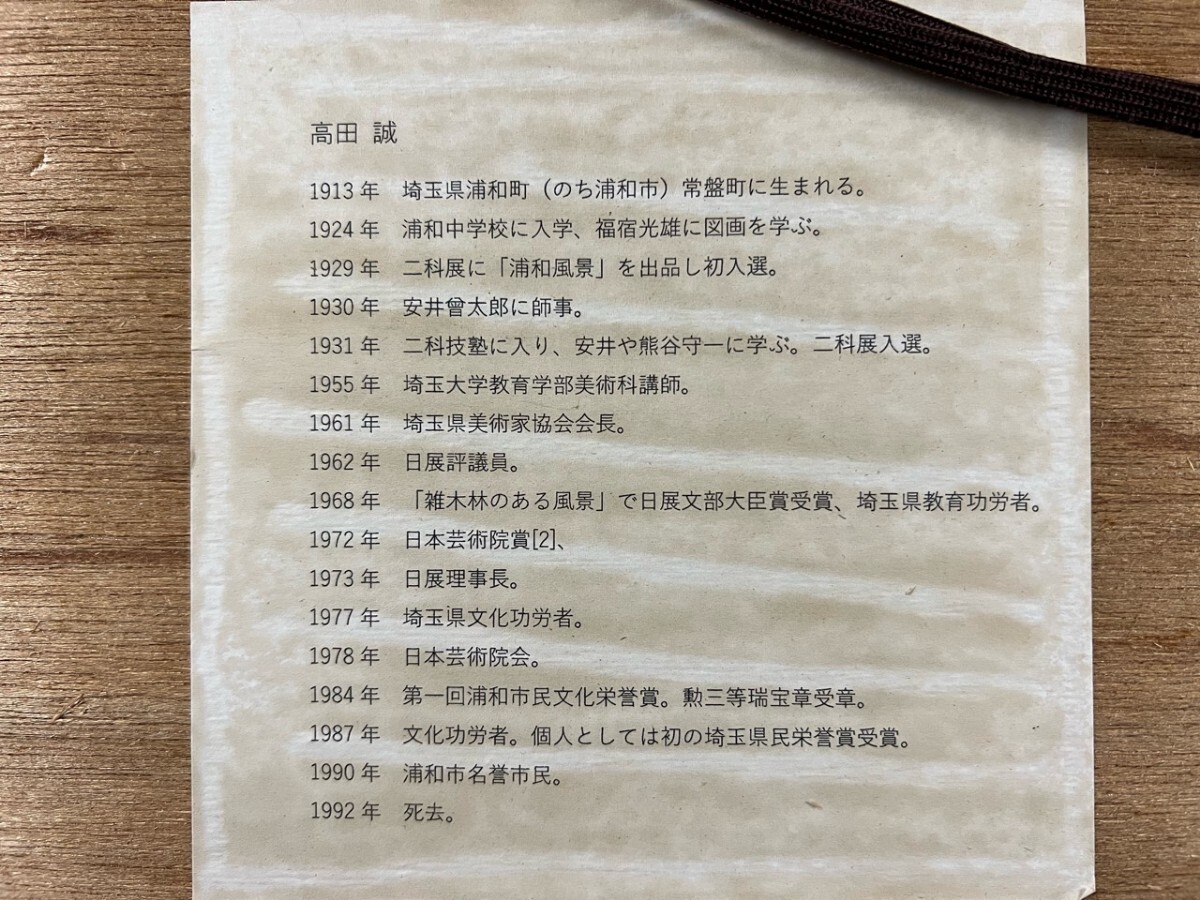 高田 誠
1913 年 埼玉県浦和町（のち浦和市）常盤町に生まれる。
1924 年 浦和中学校に入学、福宿光雄に図画を学ぶ。
1929 年 二科展に「浦和風景」を出品し初入選。
1930 年 安井曾太郎に師事。
1931 年 二科技塾に入り、安井や熊谷守一に学ぶ。二科展入選。
1955 年 埼玉大学教育学部美術科講師。
1961 年 埼玉県美術家協会会長。
1962 年 日展評議員。
1968 年 「雑木林のある風景」で日展文部大臣賞受賞、埼玉県教育功労者。
1972 年 日本芸術院賞[2]、
1973 年 日展理事長。
1977 年 埼玉県文化功労者。
1978 年 日本芸術院会。
1984 年 第一回浦和市民文化栄誉賞。勲三等瑞宝章受章。
1987 年 文化功労者。個人としては初の埼玉県民栄誉賞受賞。
1990 年 浦和市名誉市民。
1992 年 死去。